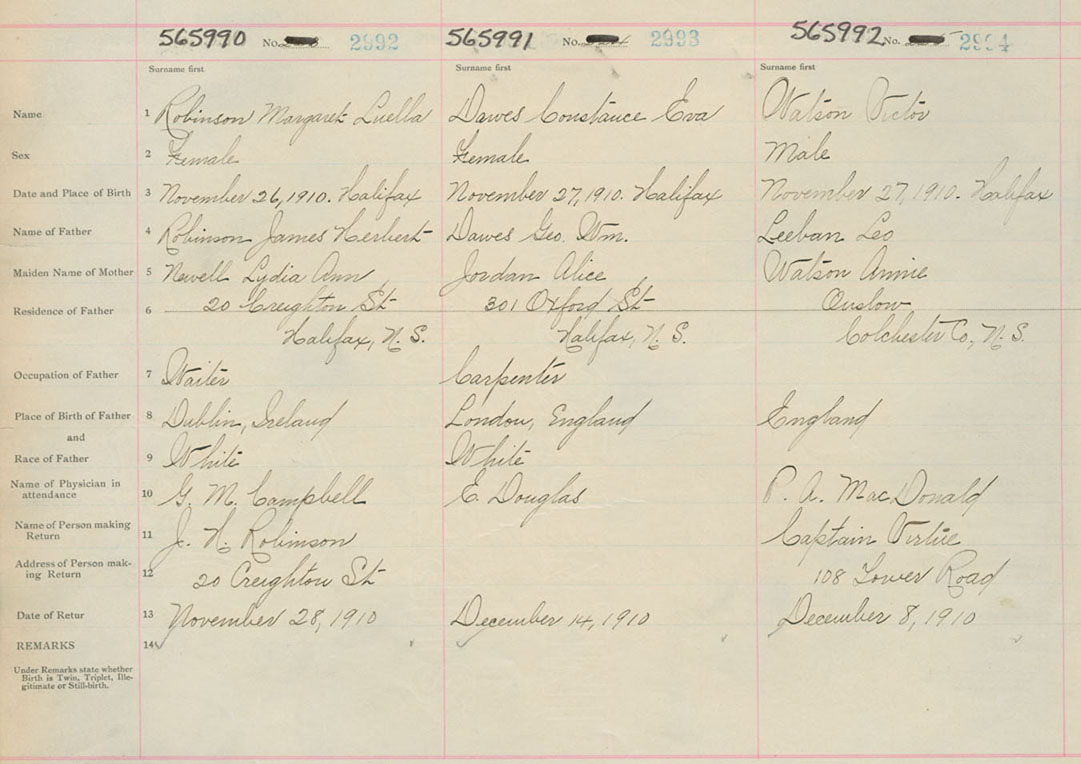 565990 No. 2992 565991 No. 2993 565992 No. 2994
Surname first Surname first Surname first
Name 1 Robinson Margaret Luella Dawes Constance Eva Watson Victor
Sex 2 Female Female Male
Date and Place of Birth 3 November 26, 1910. Halifax November 27, 1910. Halifax November 27, 1910. Halifax
Name of Father 4 Robinson James Herbert Dawes Geo. Wm. Leeban Leo
Maiden Name of Mother 5 Newell Lydia Ann Jordan Alice Watson Annie
Residence of Father 6 20 Creighton St 301 Oxford St Onslow
Halifax, N. S. Halifax, N. S. Colchester Co, N. S.
Occupation of Father 7 Waiter Carpenter
Place of Birth of Father 8 Dublin, Ireland London, England England
and
Race of Father 9 White White
Name of Physician in
attendance 10 G. M. Campbell E. Douglas P. A. MacDonald
Name of Person making
Return 11 J. H. Robinson Captain Virtue
Address of Person mak-
ing Return 12 20 Creighton St 108 Lower Road
Date of Retur 13 November 28, 1910 December 14, 1910 December 8, 1910
REMARKS 14
Under Remarks state whether
Birth is Twin, Triplet, Ille-
gitimate or Still-birth.